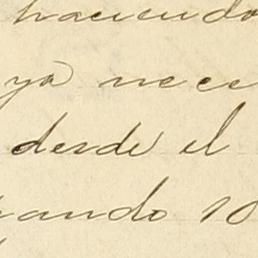 haciendo
ya nece
desde el
ando 10